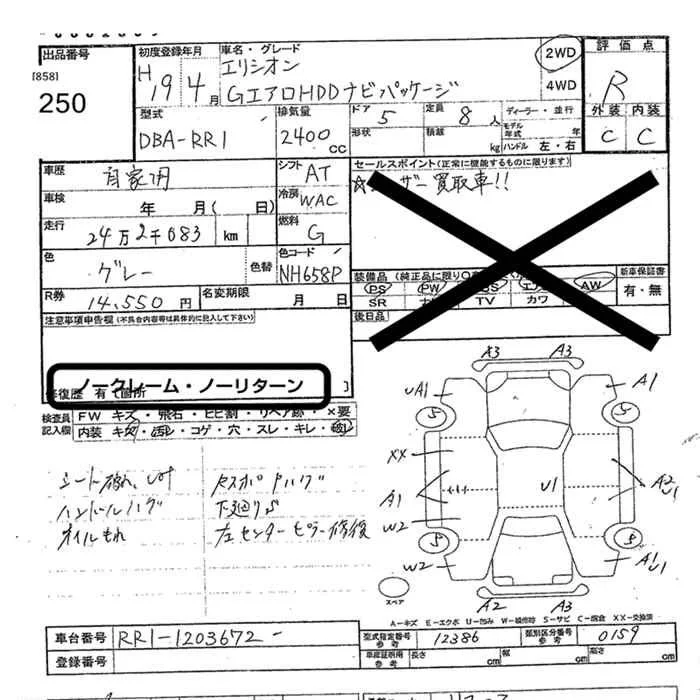 出品番号
[858]
250
初度登録年月
H 19年 4月
車名・グレード
エリシオン
GエアロHDDナビパッケージ
2WD
4WD
評価点
R
外装 内装
C C
型式
DBA-RR1
排気量
2400 cc
ドア 5
定員 8人
ディーラー・並行
形状
積載 kg
モデル年式 年
ハンドル 左・右
車歴
自家用
シフト AT
車検 年 月( 日)
冷房 WAC
走行
24万2千083 km
燃料 G
色
グレー
色替
色コード
NH658P
R券
14,550 円
名変期限 月 日
セールスポイント(正常に機能するものに限ります)
買取車!!
装備品
PS PW AW
SR TV カワ
新車保証書
有・無
後日品
注意事項申告欄(不具合内容等は具体的に記入して下さい)
ノークレーム・ノーリターン
修復歴 有 箇所
検査員記入欄
FW キズ・飛石・ヒビ割・リペア跡・×要
内装 キズ・汚れ・コゲ・穴・スレ・キレ・破れ
シート破れ
ハンドルハゲ
オイルもれ
下廻りS
左センターピラー修復
A3 A3
UA1 A1
S S
XX
A1 U1 A2 U1
W2
S S
W2 A1 U1
A2 A3
スペア
A-キズ E-エクボ U-凹み W-補修跡 S-サビ C-腐食 XX-交換済
車台番号 RR1-1203672-
登録番号
型式指定番号 参考 12386
類別区分番号 参考 0159
車庫証明用 参考 長さ cm 幅 cm 高さ cm